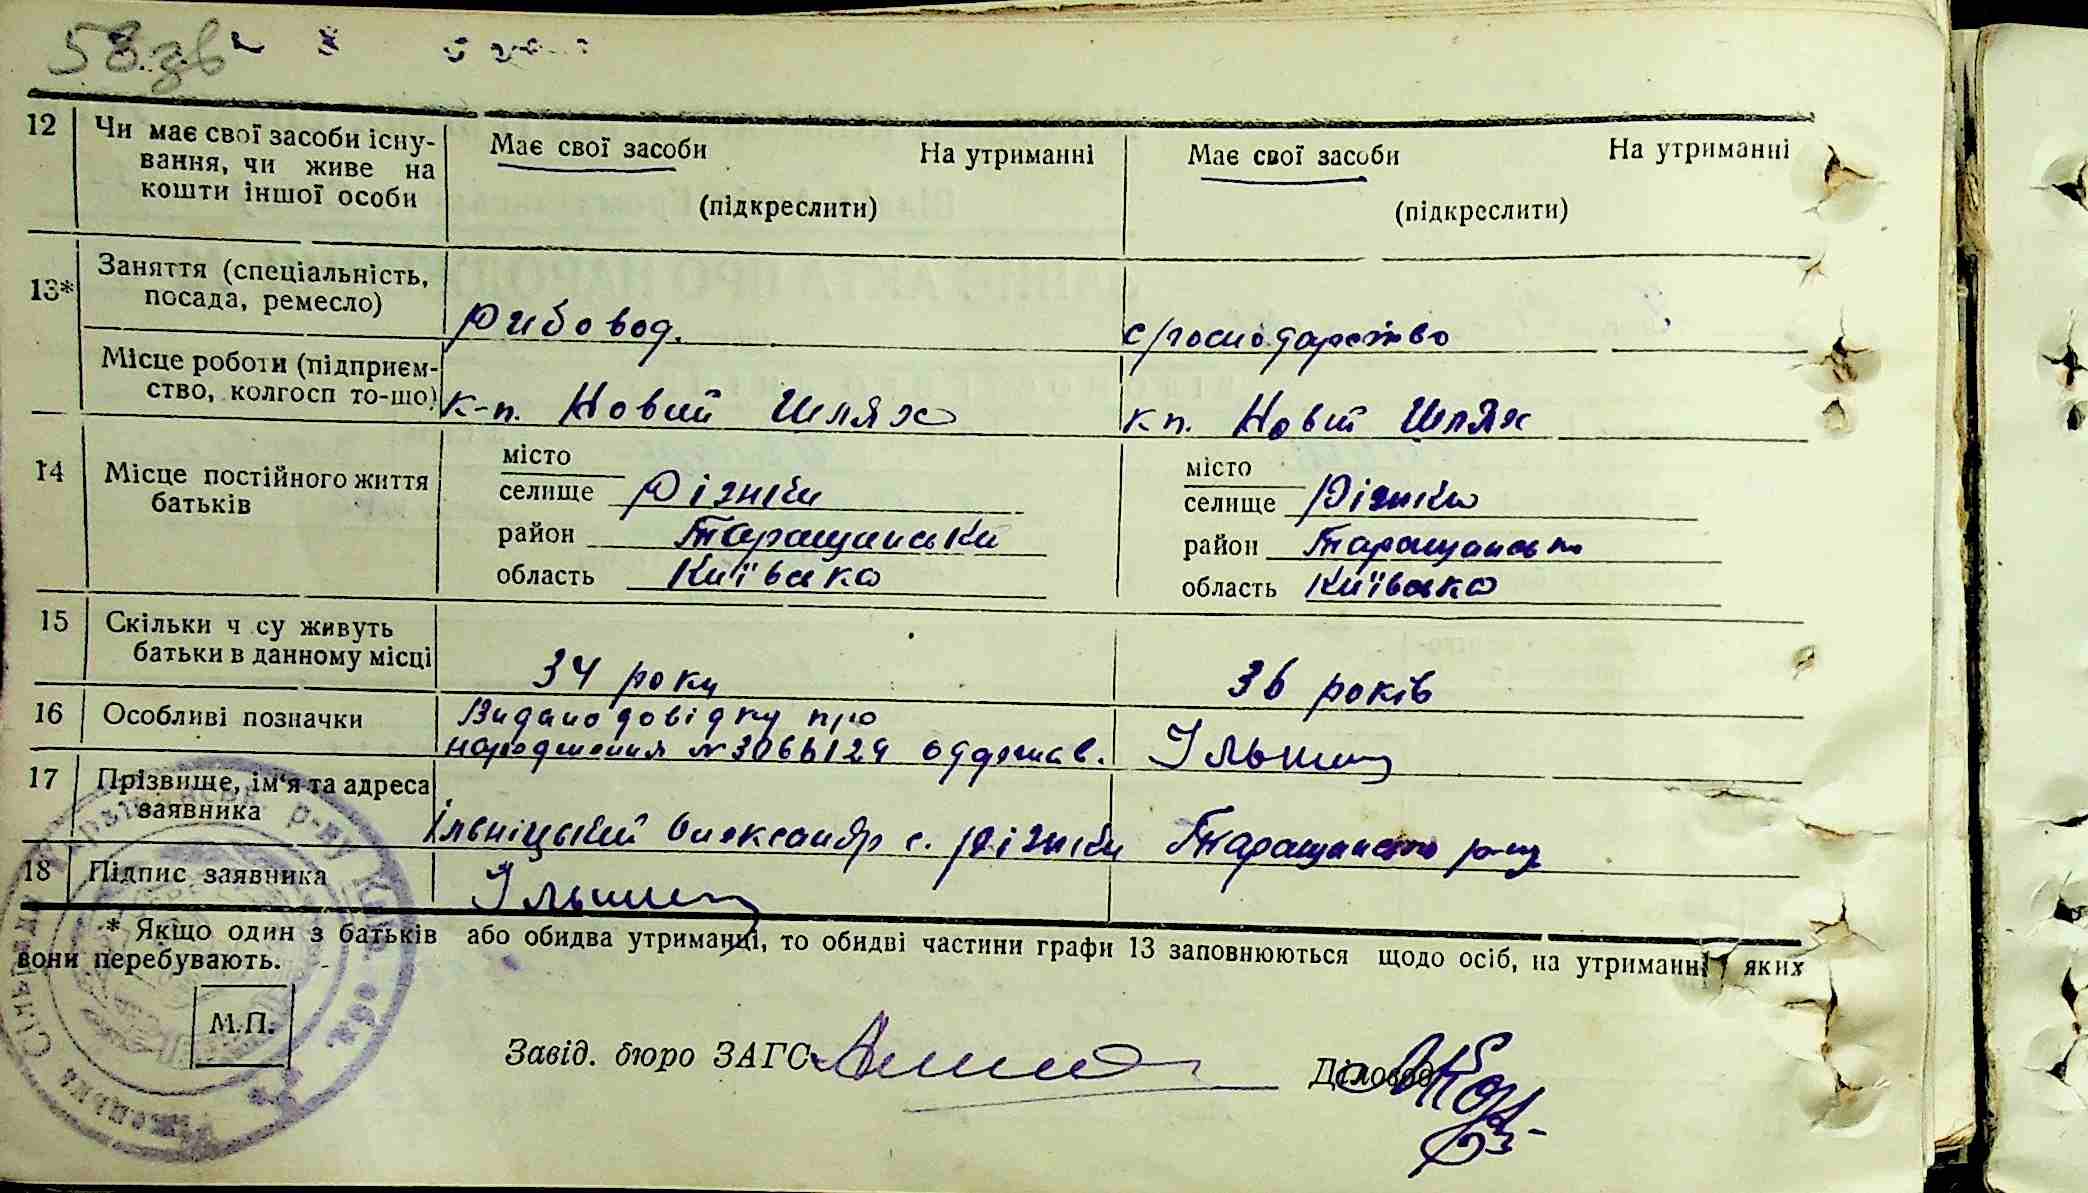 58 зв
12 Чи має свої засоби існу-
вання, чи живе на
кошти іншої особи
Має свої засоби На утриманні
(підкреслити)
Має свої засоби На утриманні
(підкреслити)
13* Заняття (спеціальність,
посада, ремесло)
Рибовод. с/господарство
Місце роботи (підприєм-
ство, колгосп то-що)
к-п. Новий Шлях кп. Новій Шлях
14 Місце постійного життя
батьків
місто
селище Ріжки
район Таращанський
область Київська
місто
селище Ріжки
район Таращансько
область Київська
15 Скільки ч су живуть
батьки в данному місці
34 року 36 років
16 Особливі позначки
Видано довідку про
народження № 3066124 одержав.
17 Прізвище, ім'я та адреса
заявника
Ільніцький Олександр с. Ріжки Таращансько р-ну
18 Підпис заявника
* Якщо один з батьків або обидва утриманці, то обидві частини графи 13 заповнюються щодо осіб, на утриманні яких
вони перебувають.
М.П.
Завід. бюро ЗАГС Діловод